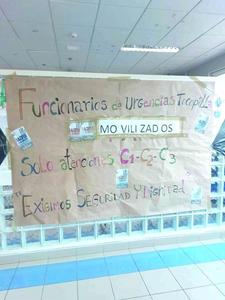 Funcionarios de Urgencias Trapiche
MOVILIZADOS
Solo atenciones C1-C2-C3
"Exigimos Seguridad y Dignidad"